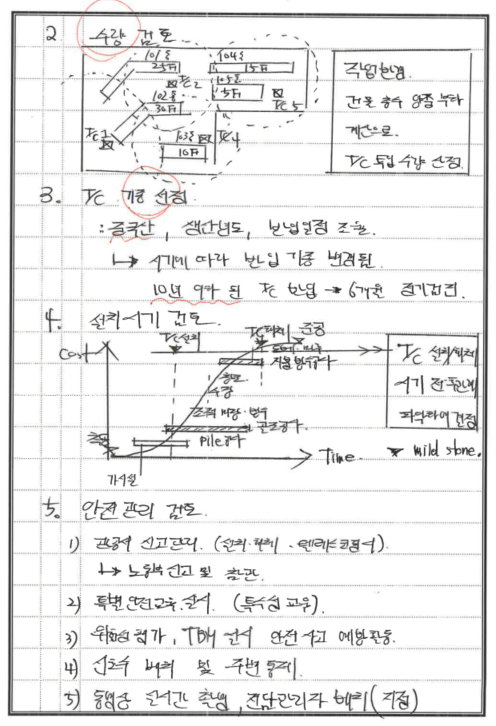 2. 수량 검토
101동
25F
104동
15F
TC2
105동
5F
TC5
102동
30F
TC1
103동
10F
TC4
작업반경.
건물 층수 양중 부하
계산으로.
TC 투입 수량 산정.
3. TC 기종 선정.
: 중국산, 생산년도, 반입일정 조율.
↳ 시기에 따라 반입 기종 변경됨.
10년 이하 된 TC 반입 → 6개월 정기점검.
4. 설치시기 검토.
TC설치
TC해체
준공
Cost
수장
조적 미장·방수
골조공사
Pile공사
착공
가시설
Time.
TC 설치/해체
파악하여 선정
mild stone.
5. 안전관리 검토.
1) 관공서 신고관리. (설치·해체
↳ 노동부 신고 및
2) 특별안전교육 실시. (특수형 교육).
3) 위험성평가, TBM 실시 안전사고 예방활동.
4) 신호수 배치 및 주변 통제.
5) 동영상 실시간 촬영, 전담관리자 배치(지정)